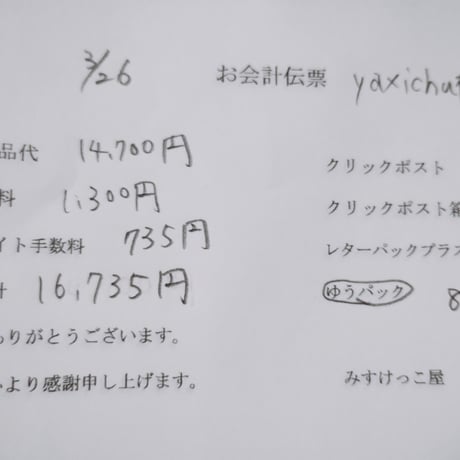 3/26 お会計伝票 yaxichu
品代 14,700円
クリックポスト
料 1,300円
クリックポスト箱
イト手数料 735円
レターパックプラス
計 16,735円
ゆうパック 8
ありがとうございます。
より感謝申し上げます。
みすけっこ屋